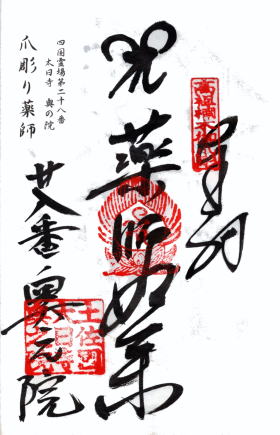 奉拝
薬師如来
廿八番奥之院
四国霊場第二十八番
大日寺 奥の院
爪彫り薬師